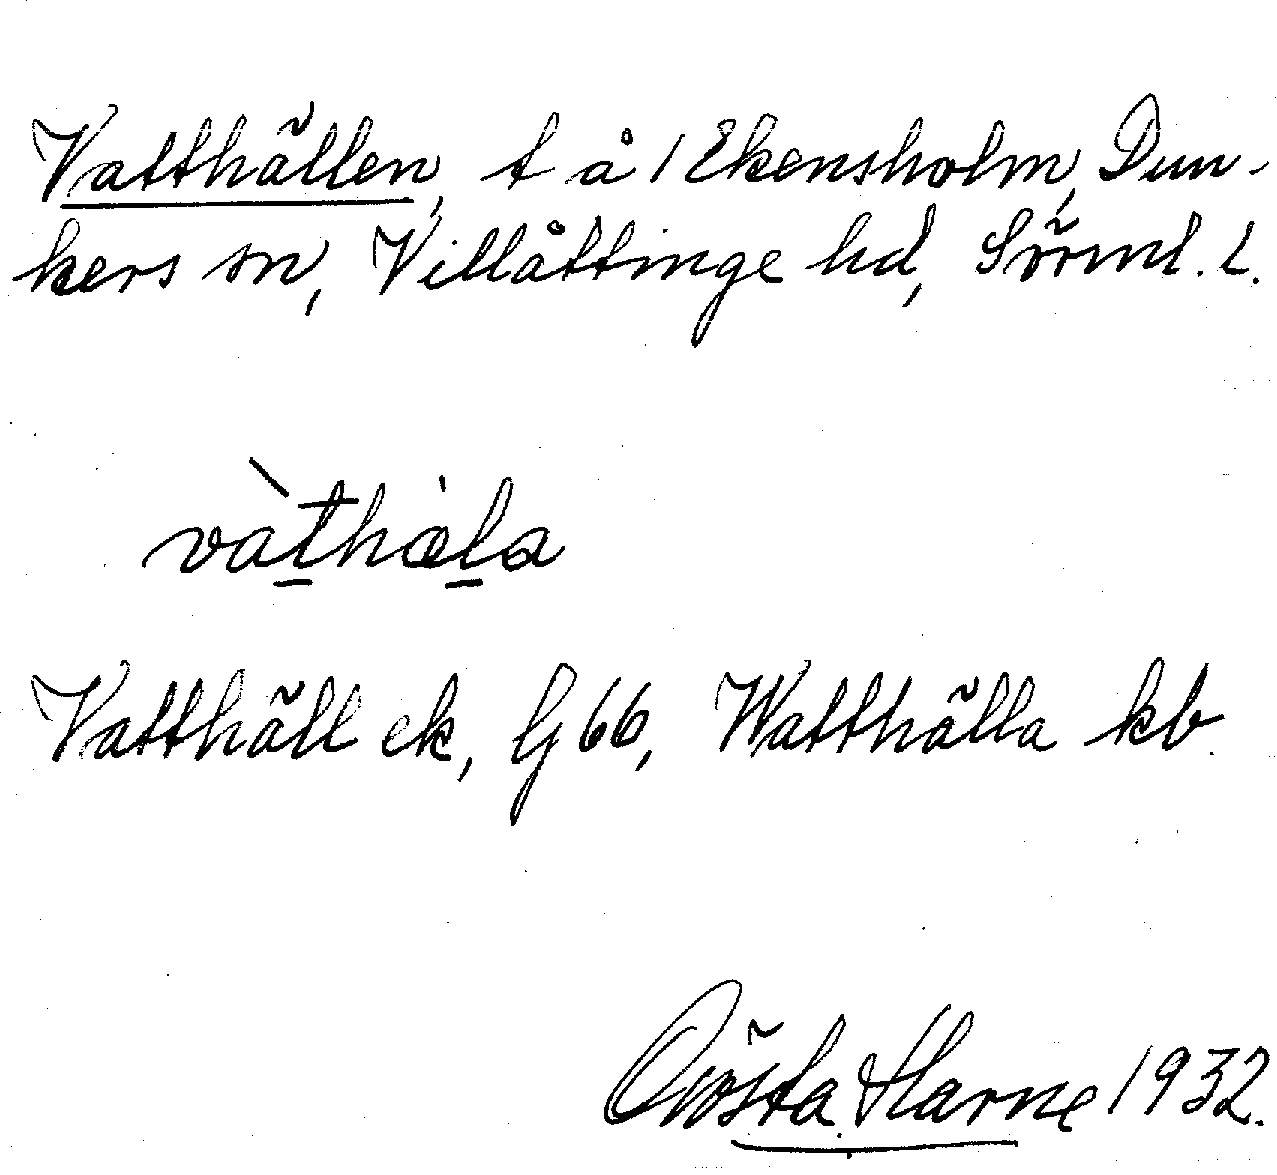 Vatthällen, t å 1 Ekensholm, Dun-
kers sn, Villåttinge hd, Sörml. l.
vàt̠hæ̀l̠a
Vatthäll ek, G 66, Watthälla kb.
Gösta Harne 1932.